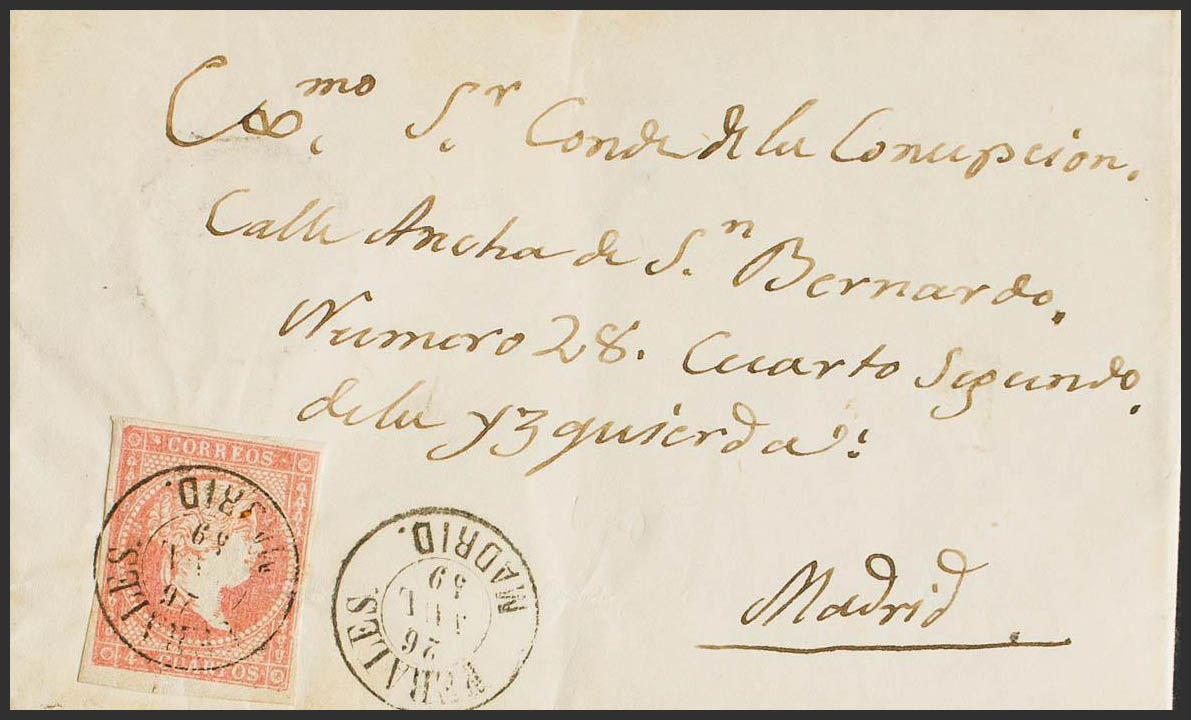 Exmo. Sr. Conde de la Concepcion.
Calle Ancha de Sn. Bernardo.
Numero 28. Cuarto Segundo.
dela Yzquierda.
Madrid.
CORREOS
4 CUARTOS
MADRID.
26
JUL
59
PERALES.
MADRID.
26
JUL
59
PERALES.